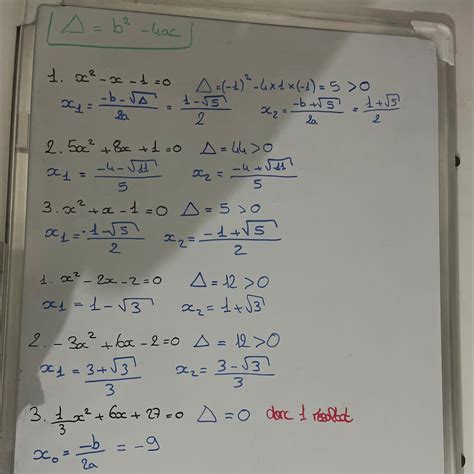 Δ = b² - 4ac
1. x² - x - 1 = 0 Δ = (-1)² - 4 × 1 × (-1) = 5 > 0
x₁ = (-b - √Δ)/2a = (1 - √5)/2 x₂ = (-b + √5)/2a = (1 + √5)/2
2. 5x² + 8x + 1 = 0 Δ = 44 > 0
x₁ = (-4 - √11)/5 x₂ = (-4 + √11)/5
3. x² + x - 1 = 0 Δ = 5 > 0
x₁ = (-1 - √5)/2 x₂ = (-1 + √5)/2
1. x² - 2x - 2 = 0 Δ = 12 > 0
x₁ = 1 - √3 x₂ = 1 + √3
2. - 3x² + 6x - 2 = 0 Δ = 12 > 0
x₁ = (3 + √3)/3 x₂ = (3 - √3)/3
3. 1/3 x² + 6x + 27 = 0 Δ = 0 donc 1 résultat
x₀ = -b/2a = -9